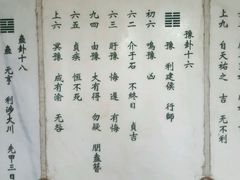 上九 自天祐之 吉 无不利
豫卦十六
豫 利建侯 行師
初六 鳴豫 凶
六二 介于石 不終日 貞吉
六三 盱豫 悔 遲 有悔
九四 由豫 大有得 勿疑 朋盍簪
六五 貞疾 恒不死
上六 冥豫 成有渝 无咎
蠱卦十八
蠱 元亨 利涉大川 先甲三日